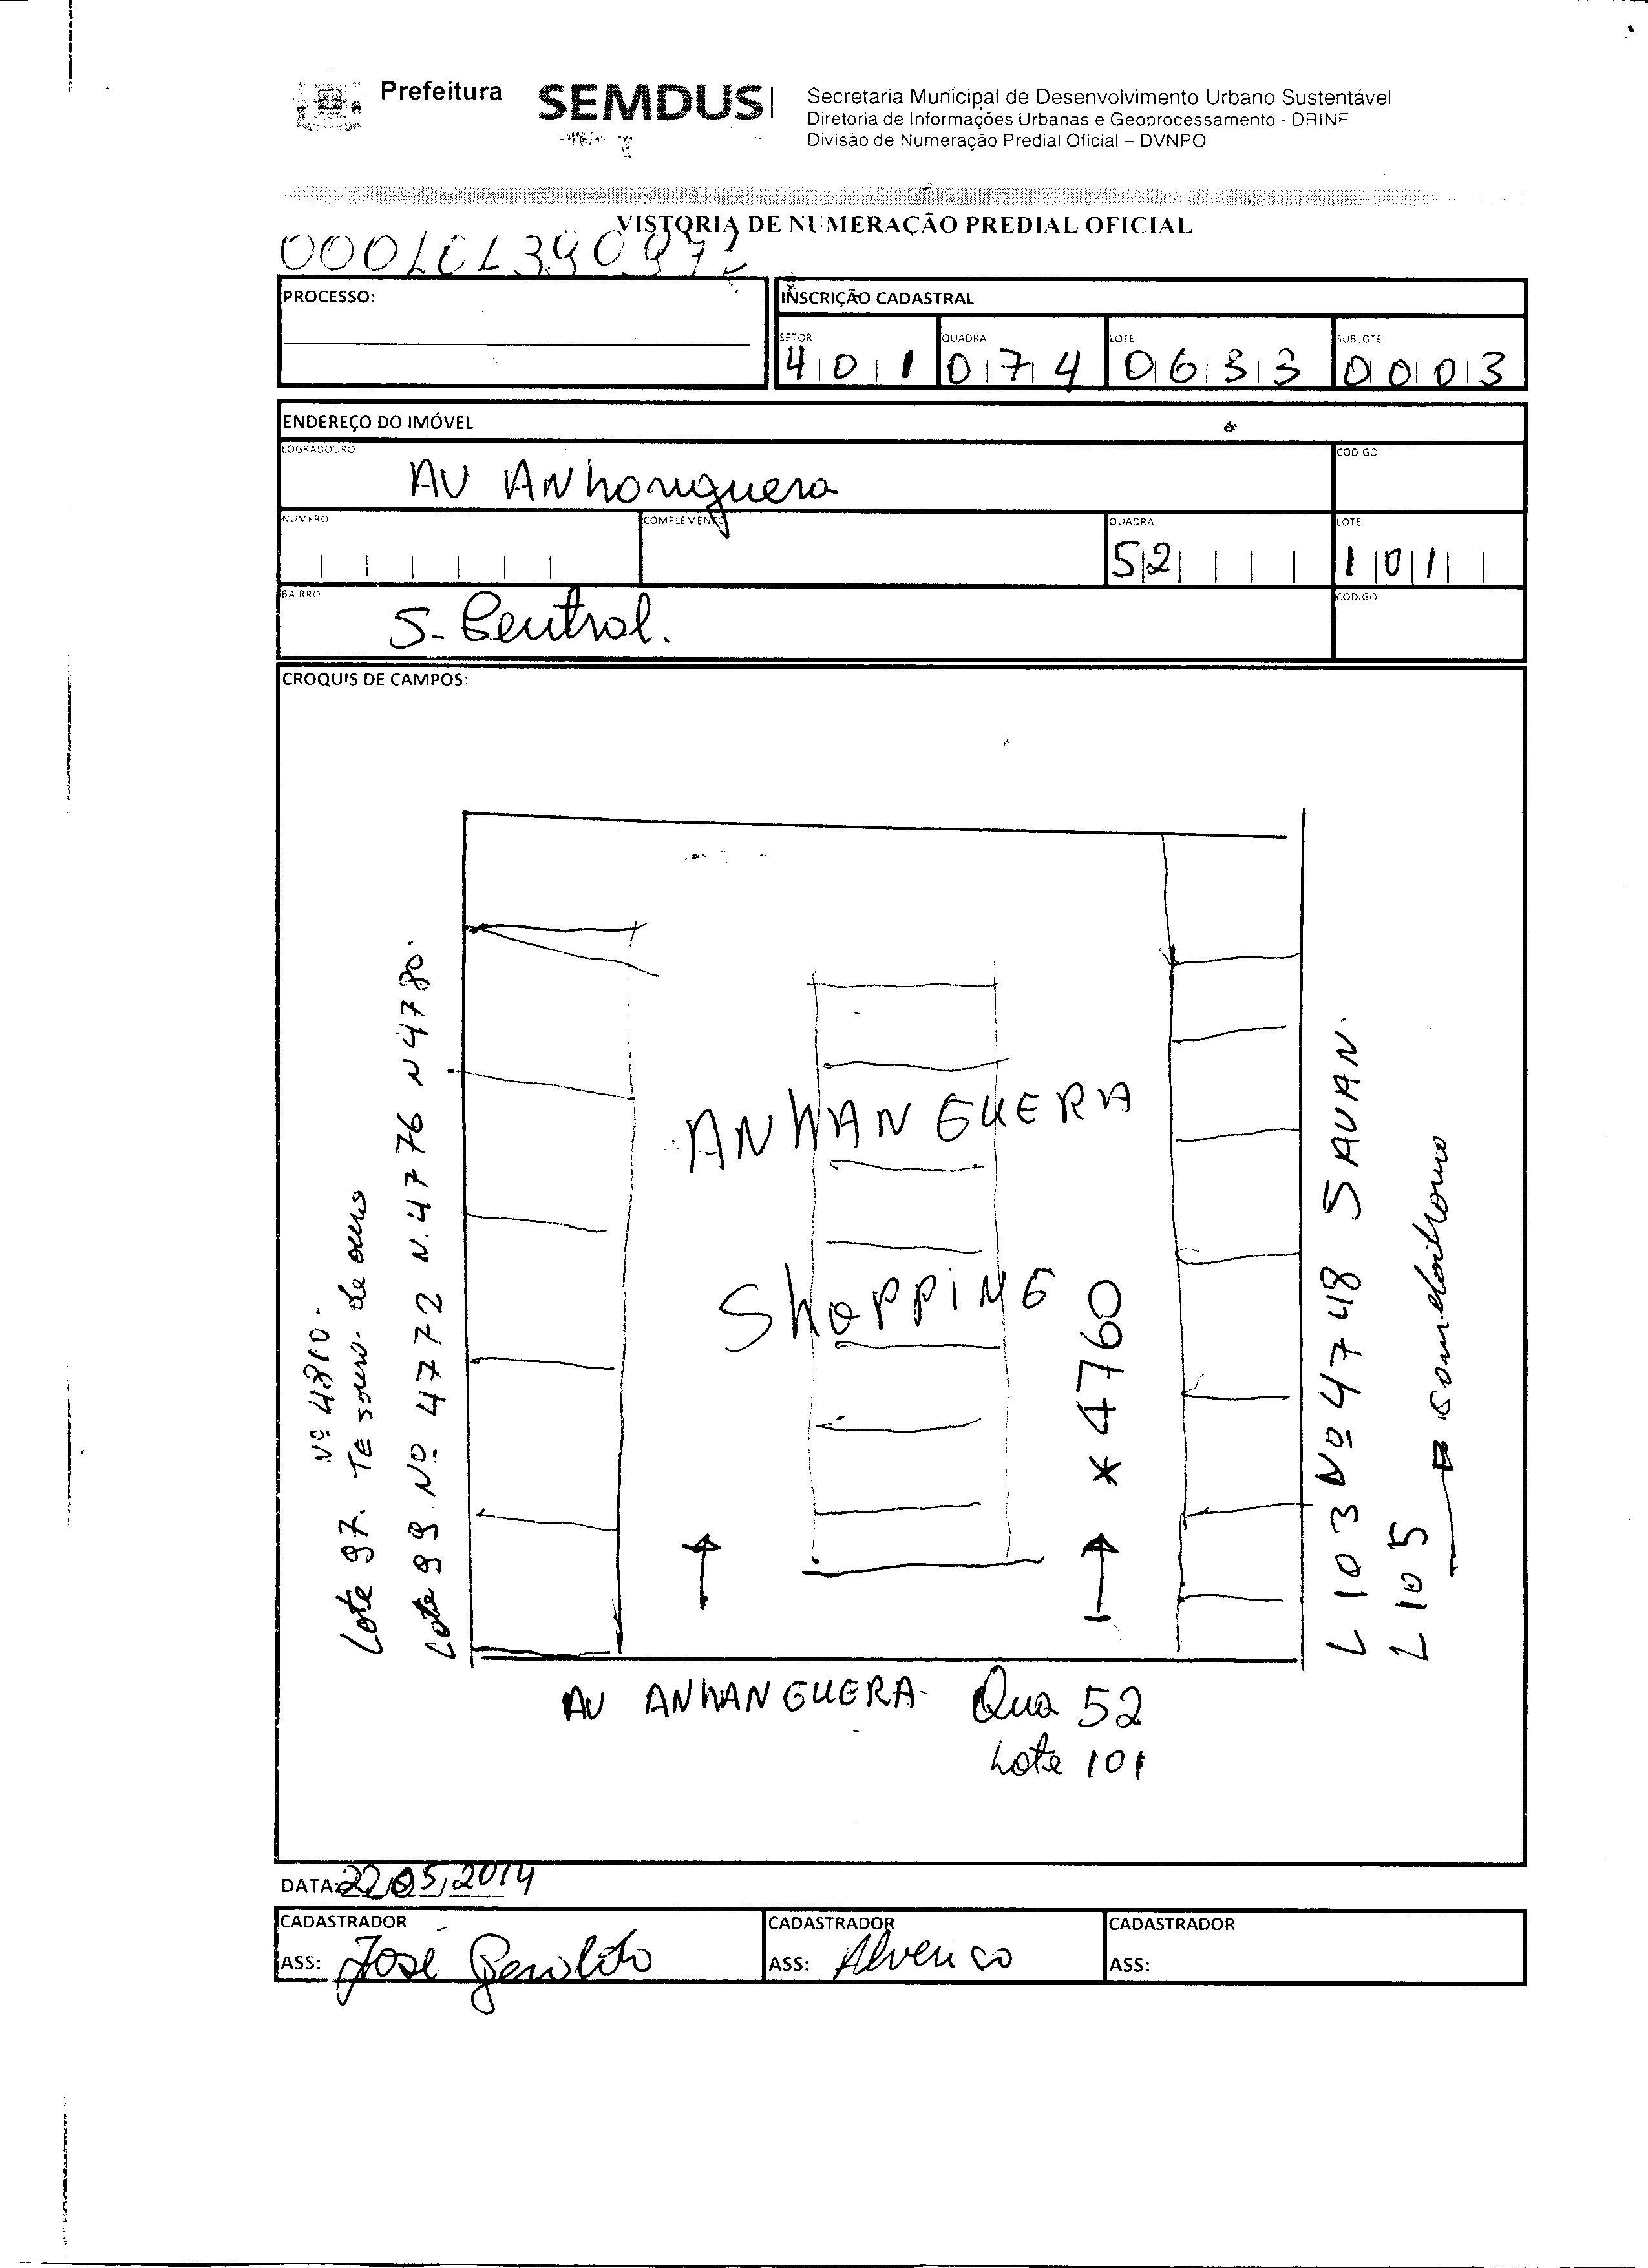 Prefeitura
SEMDUS
Secretaria Municipal de Desenvolvimento Urbano Sustentável
Diretoria de Informações Urbanas e Geoprocessamento - DRINF
Divisão de Numeração Predial Oficial – DVNPO
VISTORIA DE NUMERAÇÃO PREDIAL OFICIAL
PROCESSO:
INSCRIÇÃO CADASTRAL
SETOR QUADRA LOTE SUBLOTE
401 074 0633 0003
ENDEREÇO DO IMÓVEL
LOGRADOURO CODIGO
AV Anhanguera
NUMERO COMPLEMENTO QUADRA LOTE
52 101
BAIRRO CODIGO
S. Central.
CROQUIS DE CAMPOS:
Nº 4810.
Lote 97. Tesouro de ouro
Lote 99 Nº 4772 N. 4776 N 4780.
ANHANGUERA
SHOPPING
* 4760
L 103 Nº 4748 SAVAN.
L 105
AV ANHANGUERA. Qua 52
Lote 101
DATA: 22/05/2014
CADASTRADOR CADASTRADOR CADASTRADOR
ASS: José Geraldo ASS: Alverico ASS: